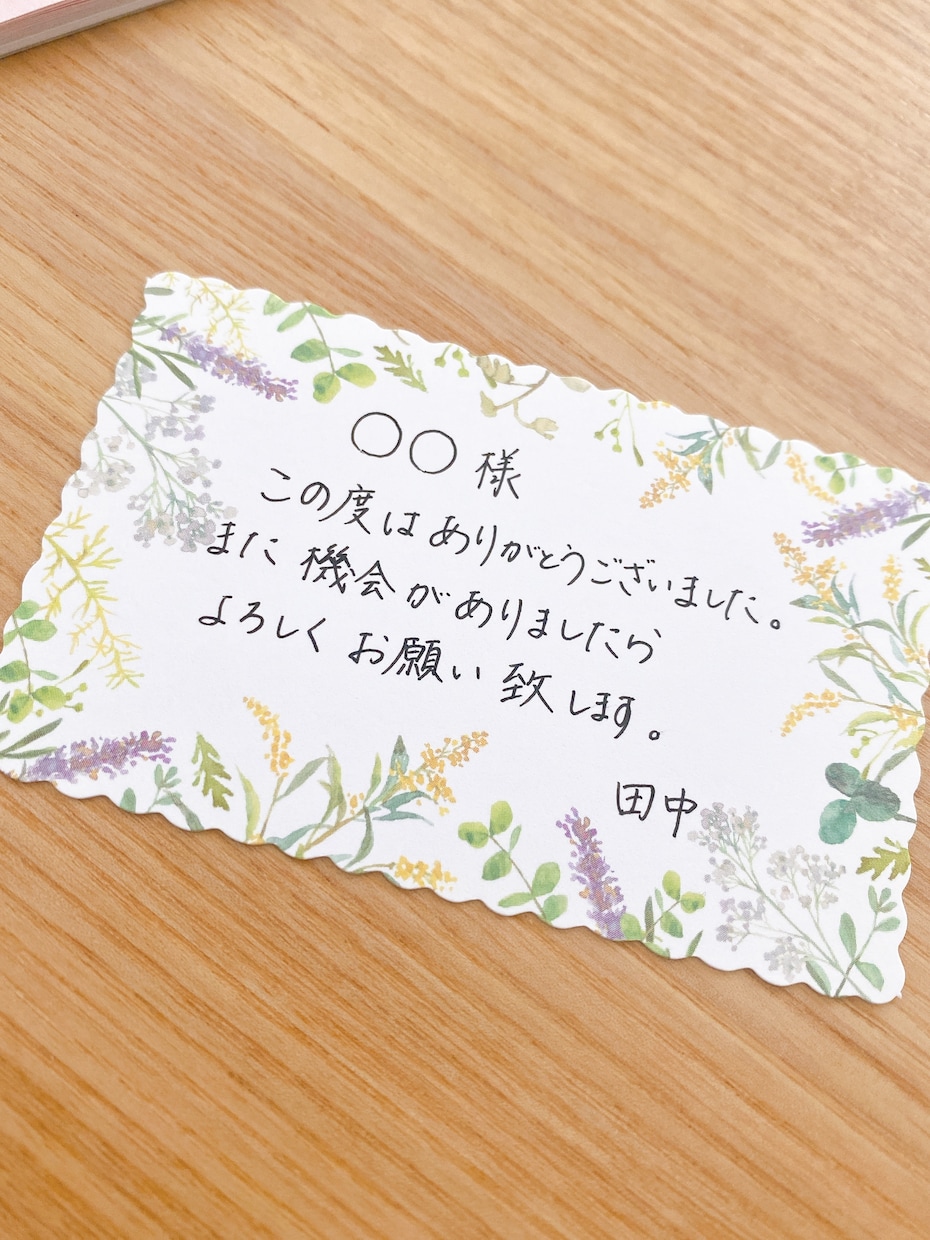 〇〇様
この度はありがとうございました。
また機会がありましたら
よろしくお願い致します。
田中